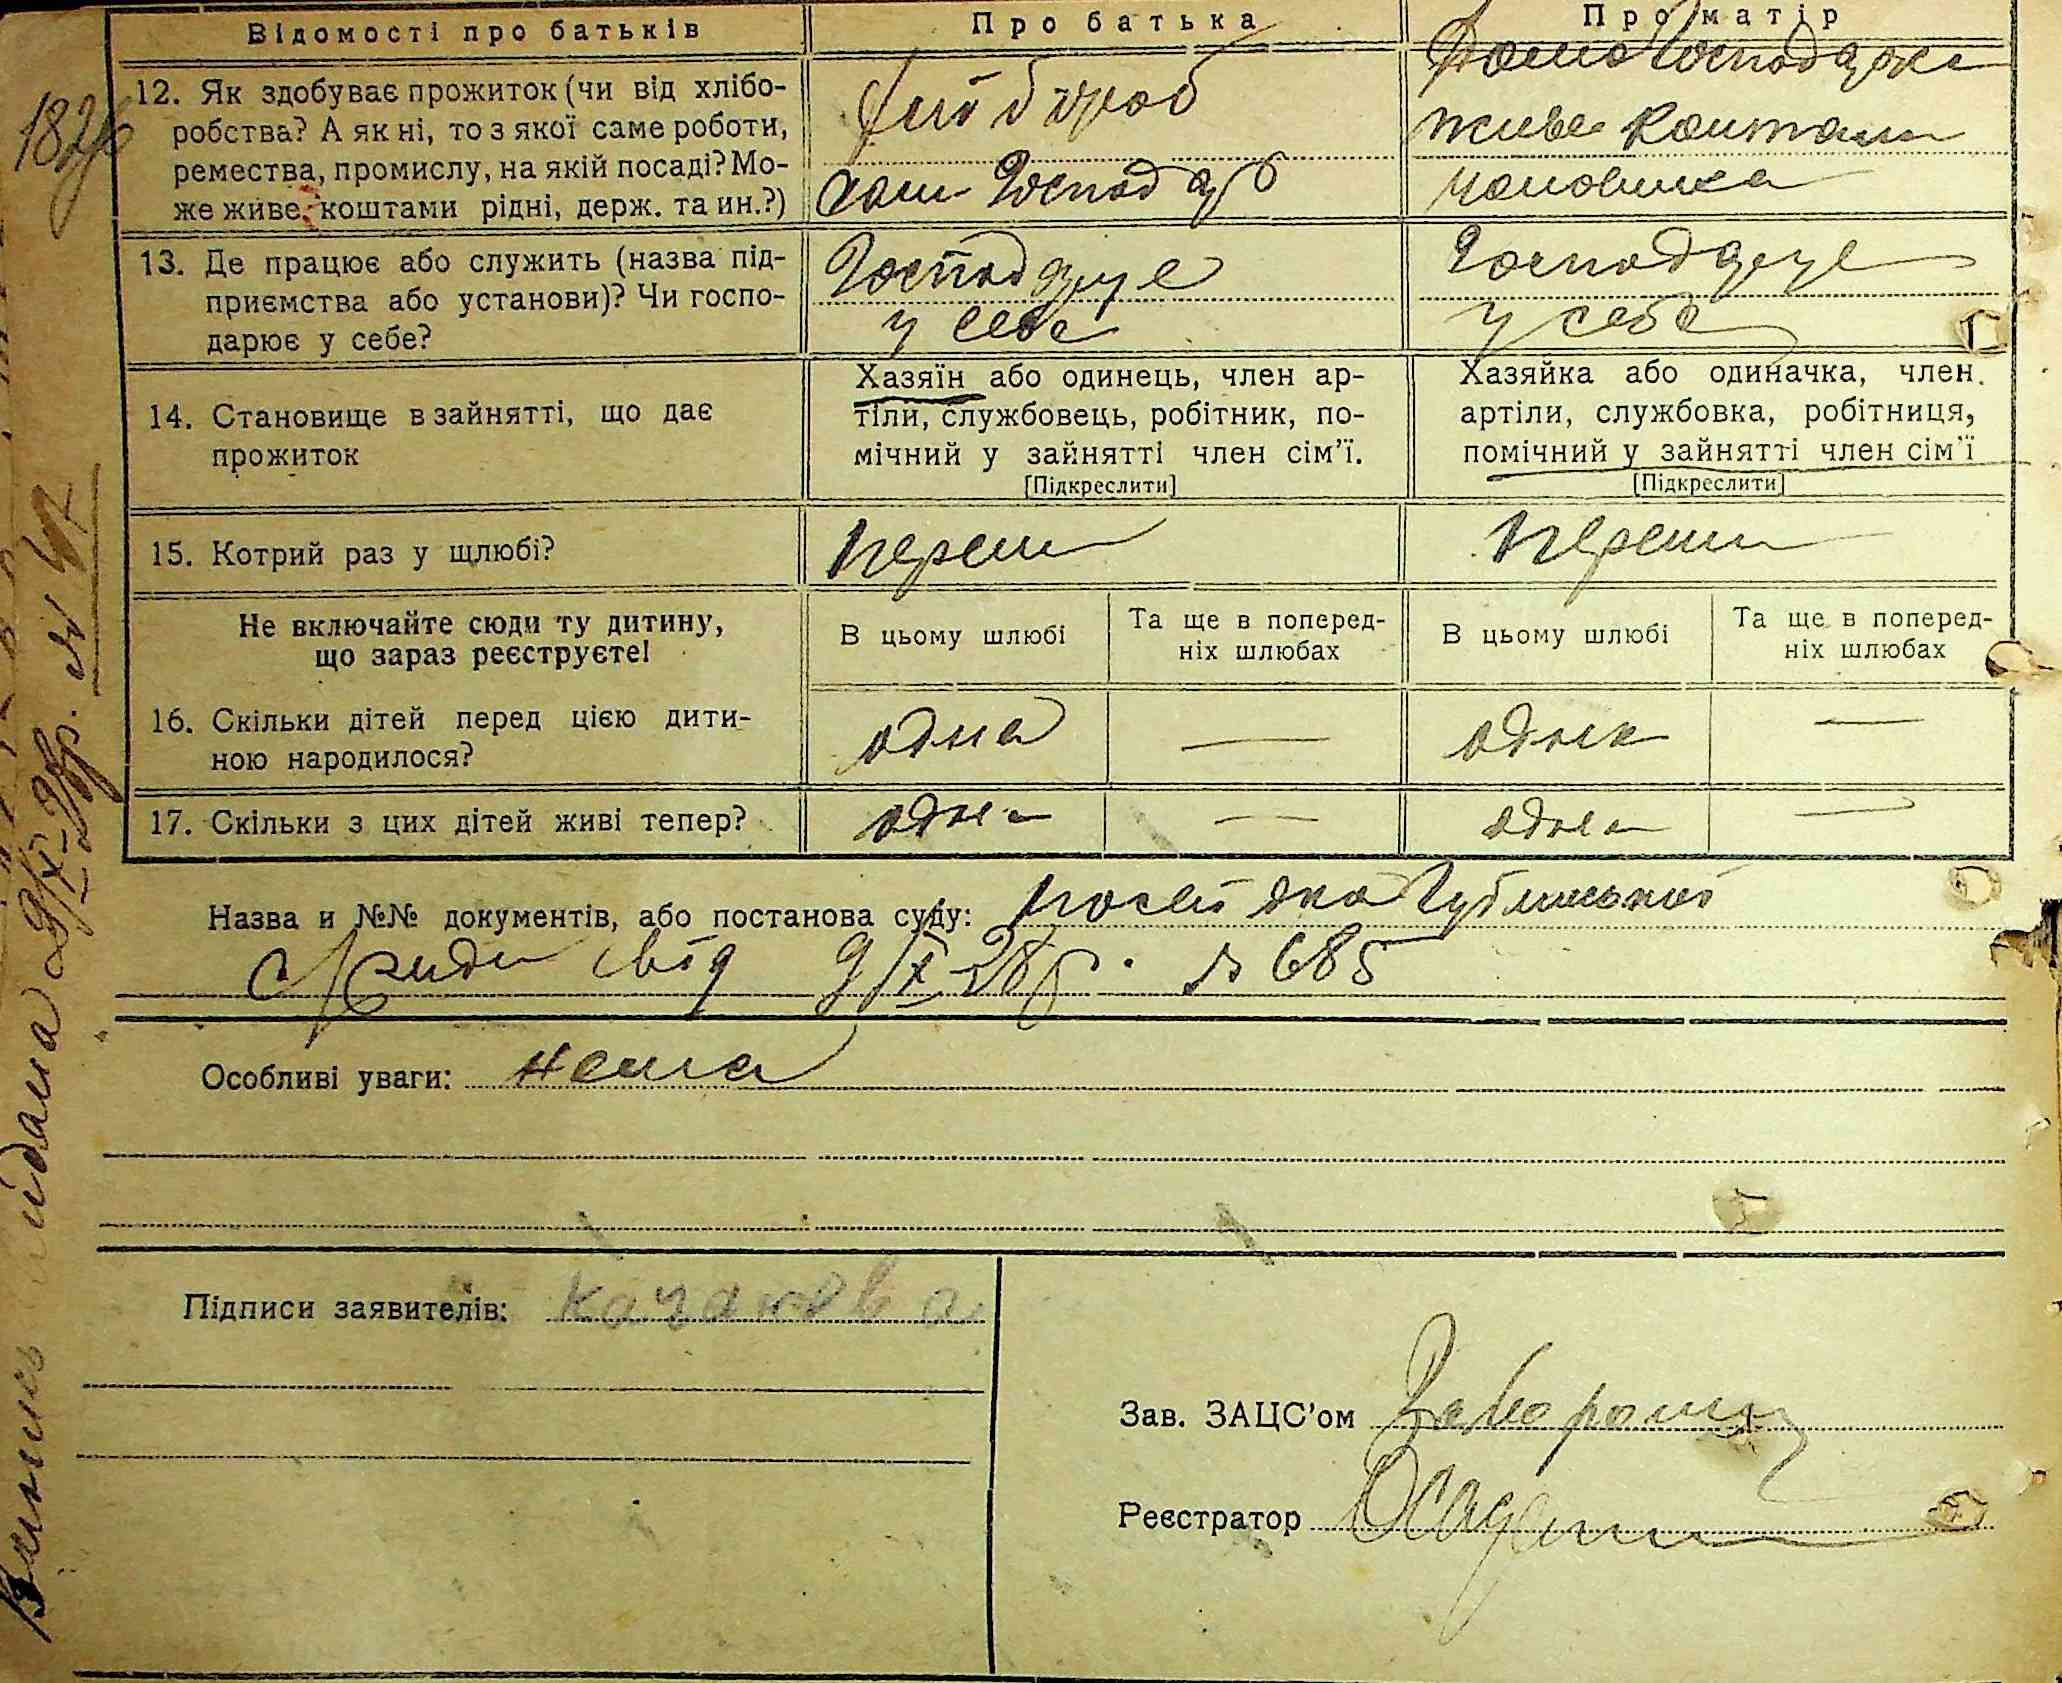 Відомості про батьків
Про батька
Про матір
182
12. Як здобуває прожиток (чи від хлібо-
робства? А як ні, то з якої саме роботи,
ремества, промислу, на якій посаді? Мо-
же живе коштами рідні, держ. та ин.?)
хлібороб
сам господар
Домогосподарка
живе коштами
чоловіка
13. Де працює або служить (назва під-
приємства або установи)? Чи госпо-
дарює у себе?
Господарує
у себе
Господарує
у себе
14. Становище в зайнятті, що дає
прожиток
Хазяїн або одинець, член ар-
тіли, службовець, робітник, по-
мічний у зайнятті член сім'ї.
[Підкреслити]
Хазяйка або одиначка, член.
артіли, службовка, робітниця,
помічний у зайнятті член сім'ї
[Підкреслити]
15. Котрий раз у шлюбі?
перший
перший
Не включайте сюди ту дитину,
що зараз реєструєте!
В цьому шлюбі
Та ще в поперед-
ніх шлюбах
В цьому шлюбі
Та ще в поперед-
ніх шлюбах
16. Скільки дітей перед цією дити-
ною народилося?
одна
—
одна
—
17. Скільки з цих дітей живі тепер?
одна
—
одна
—
Назва и №№ документів, або постанова суду: посвідка
с/Ради від 9/IX-28р. № 685
Особливі уваги: нема
Підписи заявителів:
Зав. ЗАЦС'ом
Реєстратор
Випись видана 9/IX-28р. №